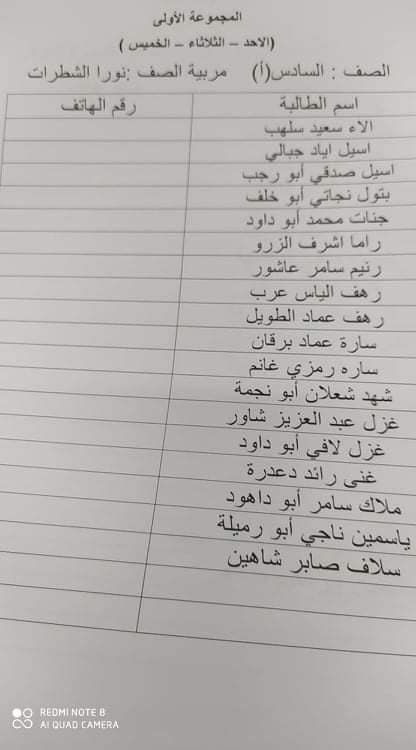 المجموعة الأولى
(الاحد – الثلاثاء – الخميس )
الصف : السادس(أ) مربية الصف :نورا الشطرات
اسم الطالبة رقم الهاتف
الاء سعيد سلهب
اسيل اياد جبالي
اسيل صدقي أبو رجب
بتول نجاتي أبو خلف
جنات محمد أبو داود
راما اشرف الزرو
رنيم سامر عاشور
رهف الياس عرب
رهف عماد الطويل
سارة عماد برقان
ساره رمزي غانم
شهد شعلان أبو نجمة
غزل عبد العزيز شاور
غزل لافي أبو داود
غنى رائد دعدرة
ملاك سامر أبو داهود
ياسمين ناجي أبو رميلة
سلاف صابر شاهين
REDMI NOTE 8
AI QUAD CAMERA